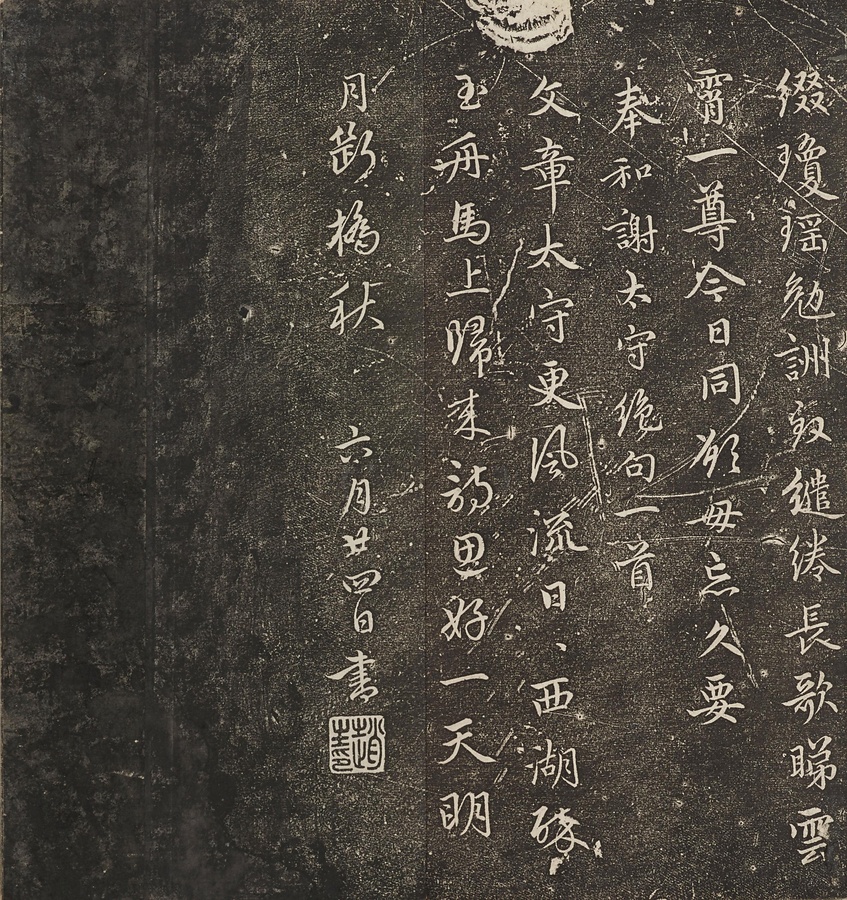 綴瓊瑤勉詶叙繾綣長歌睇雲
霄一尊今日同願毋忘久要
奉和謝太守絶句一首
文章太守更風流日、西湖醉
玉舟馬上歸来詩思好一天明
月断橋秋 六月廿四日書
趙